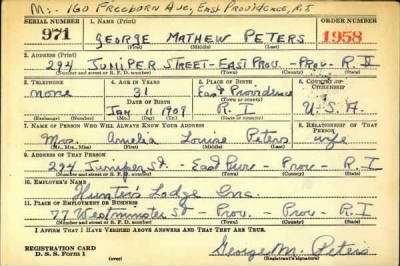 M:- 160 Freeborn Ave, East Providence, R.I
SERIAL NUMBER 1. NAME (Print) ORDER NUMBER
971 GEORGE MATHEW PETERS 1958
(First) (Middle) (Last)
2. ADDRESS (Print)
294 JUNIPER STREET-EAST PROV. - PROV- R.I
(Number and street or R. F. D. number) (Town) (County) (State)
3. TELEPHONE 4. AGE IN YEARS 5. PLACE OF BIRTH 6. COUNTRY OF CITIZENSHIP
none 31 East Providence
DATE OF BIRTH (Town or county)
Jan 11 1909 R.I U.S.A.
(Exchange) (Number) (Mo.) (Day) (Yr.) (State or country)
7. NAME OF PERSON WHO WILL ALWAYS KNOW YOUR ADDRESS 8. RELATIONSHIP OF THAT PERSON
Mrs. Amelia Louise Peters wife
(Mr., Mrs., Miss) (First) (Middle) (Last)
9. ADDRESS OF THAT PERSON
294 Juniper St. - East Prov - Prov - R.I
(Number and street or R. F. D. number) (Town) (County) (State)
10. EMPLOYER'S NAME
Hunter's Lodge Inc.
11. PLACE OF EMPLOYMENT OR BUSINESS
77 Westminster St - Prov. - Prov. - R.I
(Number and street or R. F. D. number) (Town) (County) (State)
I AFFIRM THAT I HAVE VERIFIED ABOVE ANSWERS AND THAT THEY ARE TRUE.
REGISTRATION CARD
D. S. S. Form 1 (over) George M. Peters
(Registrant's signature)